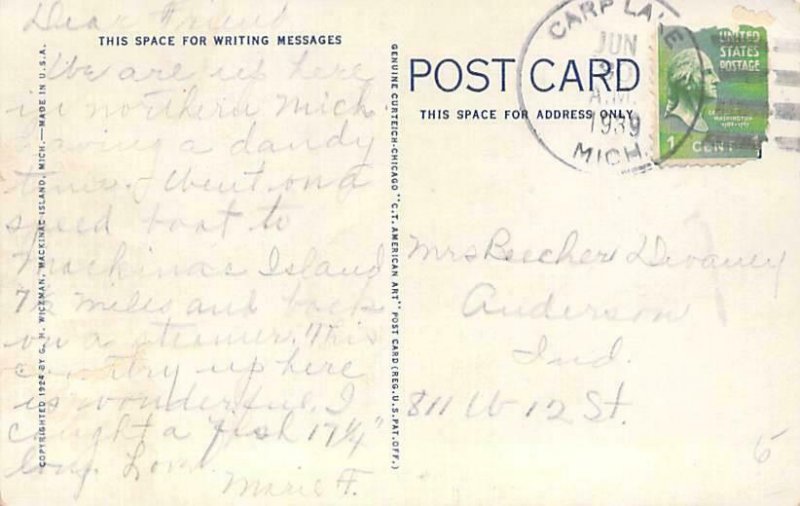 Dear Friend
THIS SPACE FOR WRITING MESSAGES
We are up here
in northern Mich.
having a dandy
time. I went on a
speed boat to
Mackinac Island
7½ miles and back
on a steamer. This
country up here
is wonderful. I
caught a fish 17¼"
long. Love
Marie F.
COPYRIGHTED 1924 BY G. H. WICKMAN, MACKINAC ISLAND, MICH.—MADE IN U.S.A.
GENUINE CURTEICH-CHICAGO "C.T. AMERICAN ART" POST CARD (REG. U.S. PAT. OFF.)
POST CARD
THIS SPACE FOR ADDRESS ONLY
CARP LAKE
JUN
30
A.M.
1939
MICH.
UNITED
STATES
POSTAGE
WASHINGTON
1 CENT
Mrs Beecher Devaney
Anderson
Ind.
811 W 12 St.